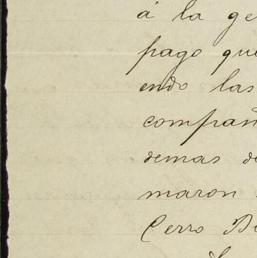 á la ge
pago que
endo las
compañ
demas de
maron
Cerro